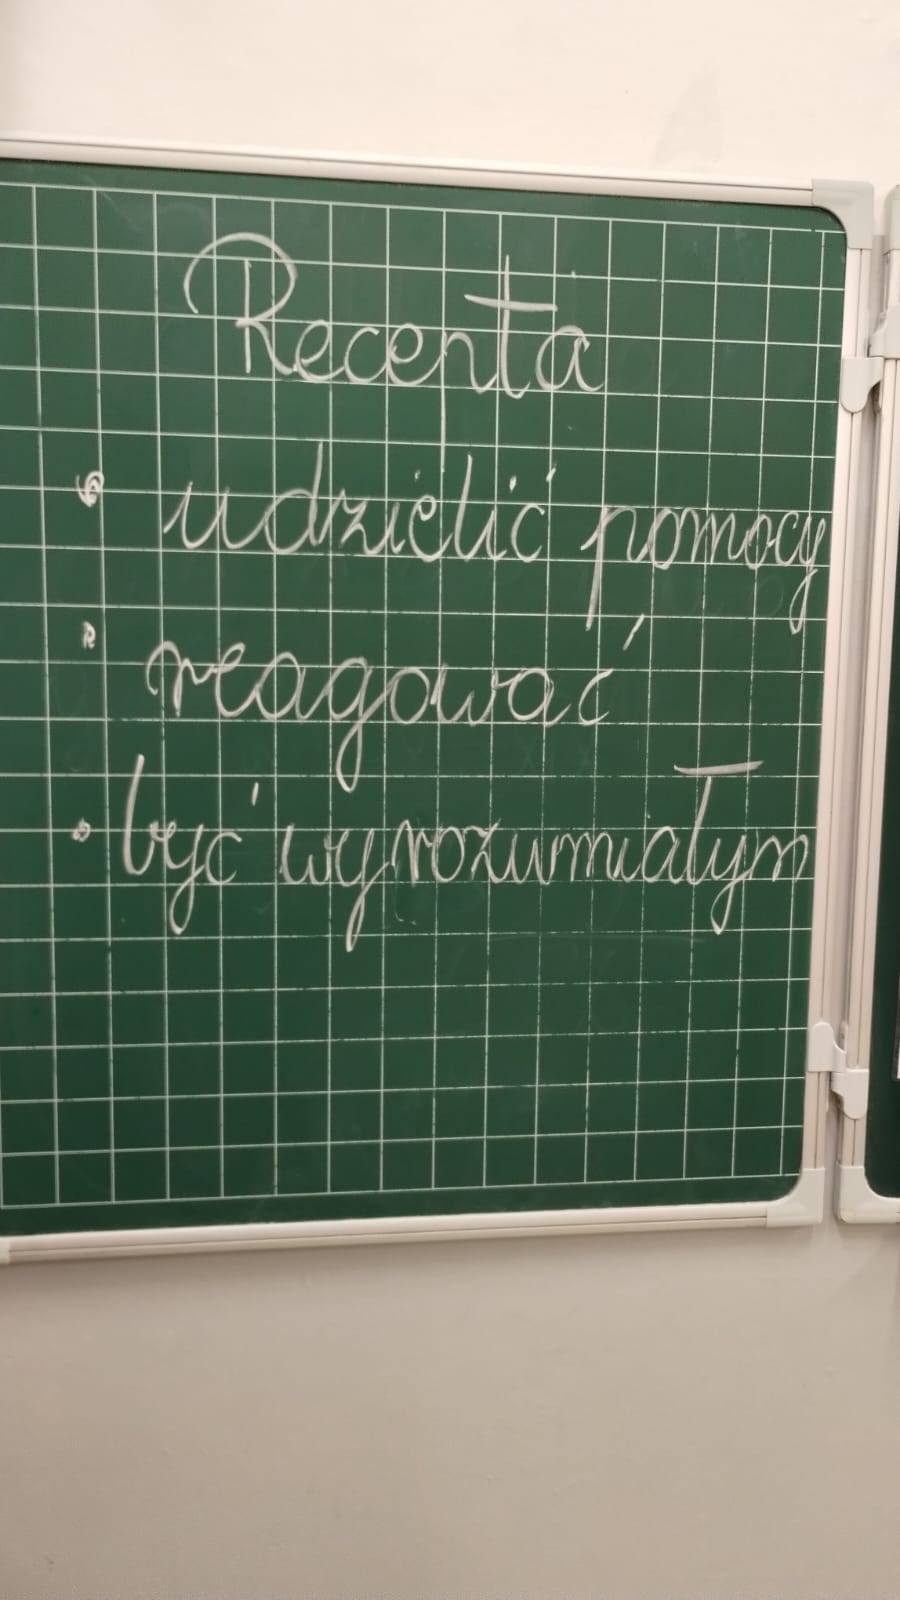 Recepta
• udzielić pomocy
• reagować
• być wyrozumiałym